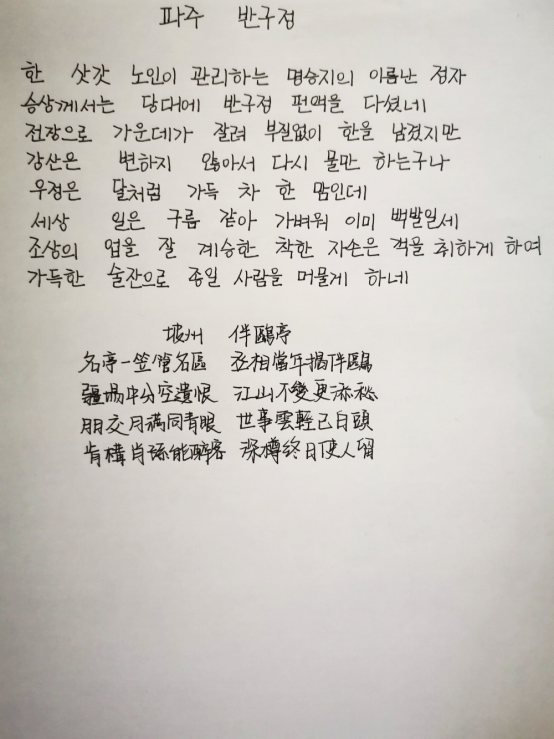 파주 반구정
한 삿갓 노인이 관리하는 명승지의 이름난 정자
승상께서는 당대에 반구정 편액을 다셨네
전장으로 가운데가 잘려 부질없이 한을 남겼지만
강산은 변하지 않아서 다시 물만 하는구나
우정은 달처럼 가득 차 한 맘인데
세상 일은 구름 같아 가벼워 이미 백발일세
조상의 업을 잘 계승한 착한 자손은 객을 취하게 하며
가득한 술잔으로 종일 사람을 머물게 하네
坡州 伴鷗亭
名亭一笠管名區 丞相當年揭伴鷗
疆場中分空遺恨 江山不變更添愁
朋交月滿同靑眼 世事雲輕已白頭
肯構肖孫能醉客 深樽終日使人留